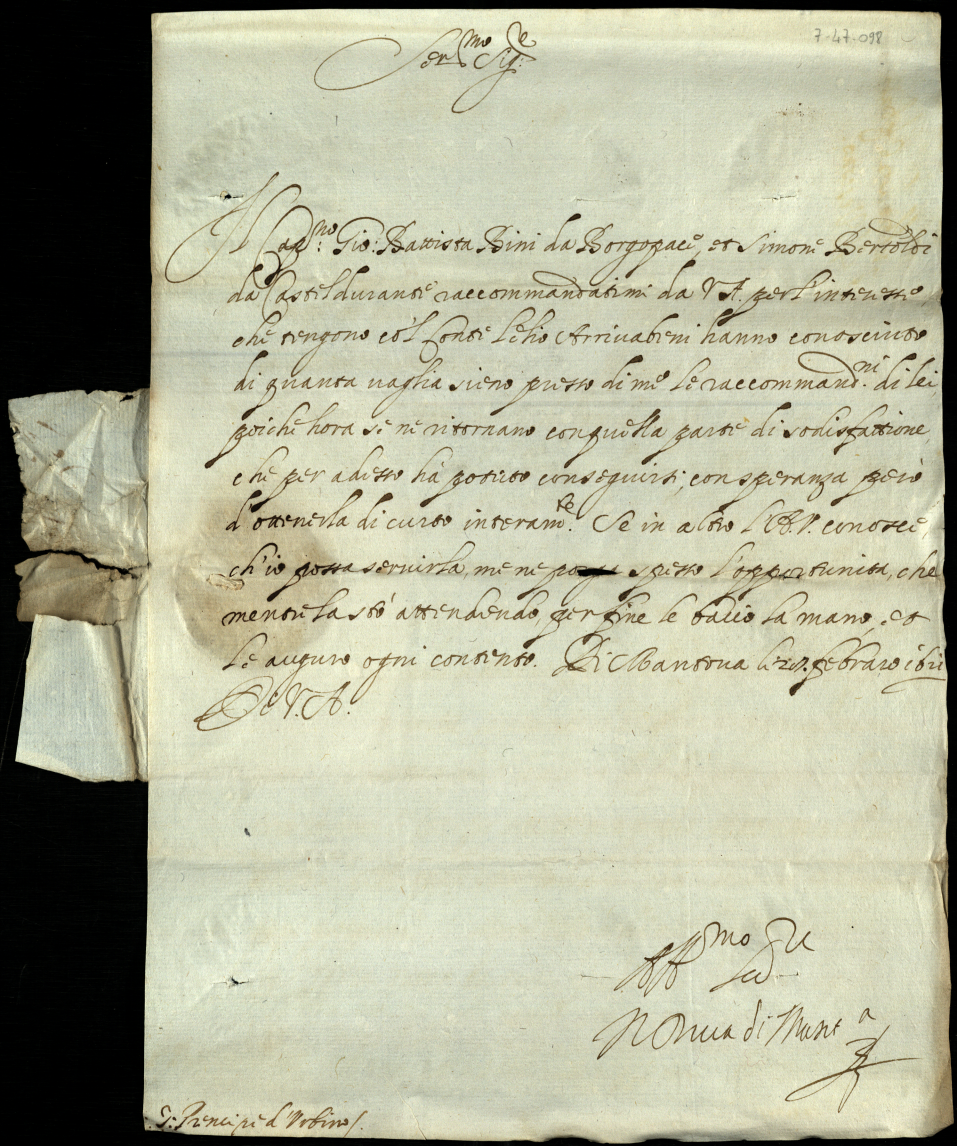 7-47-098
Ser.mo Sig.re
Il Cap.no Gio: Battista Bini da Borgopace, et Simone Bertoldi
da Casteldurante raccommandatimi da V.A. per l'interesse
che tengono co'l Conte Lelio Arrivabeni hanno conosciuto
di quanta vaglia sieno presso di me le raccommand.ni di lei,
poiche hora se ne ritornano con quella parte di sodisfattione,
che per adesso hà potuto conseguirsi, con speranza però
d'ottenerla di curto interam.te. Se in altro l'A.V. conosce,
ch'io possa servirla, me ne spesso l'opportunita, che
mentre la stò attendendo, per fine le bacio la mano, et
le auguro ogni contento. Di Mantova li 27. febraro
Di V.A.
Aff.mo Ser.re
Il Duca di Mant.a
S. Prencipe d'Urbino